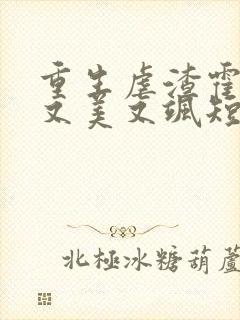 重生虐渣霍
又美又飒短
北極冰糖葫蘆